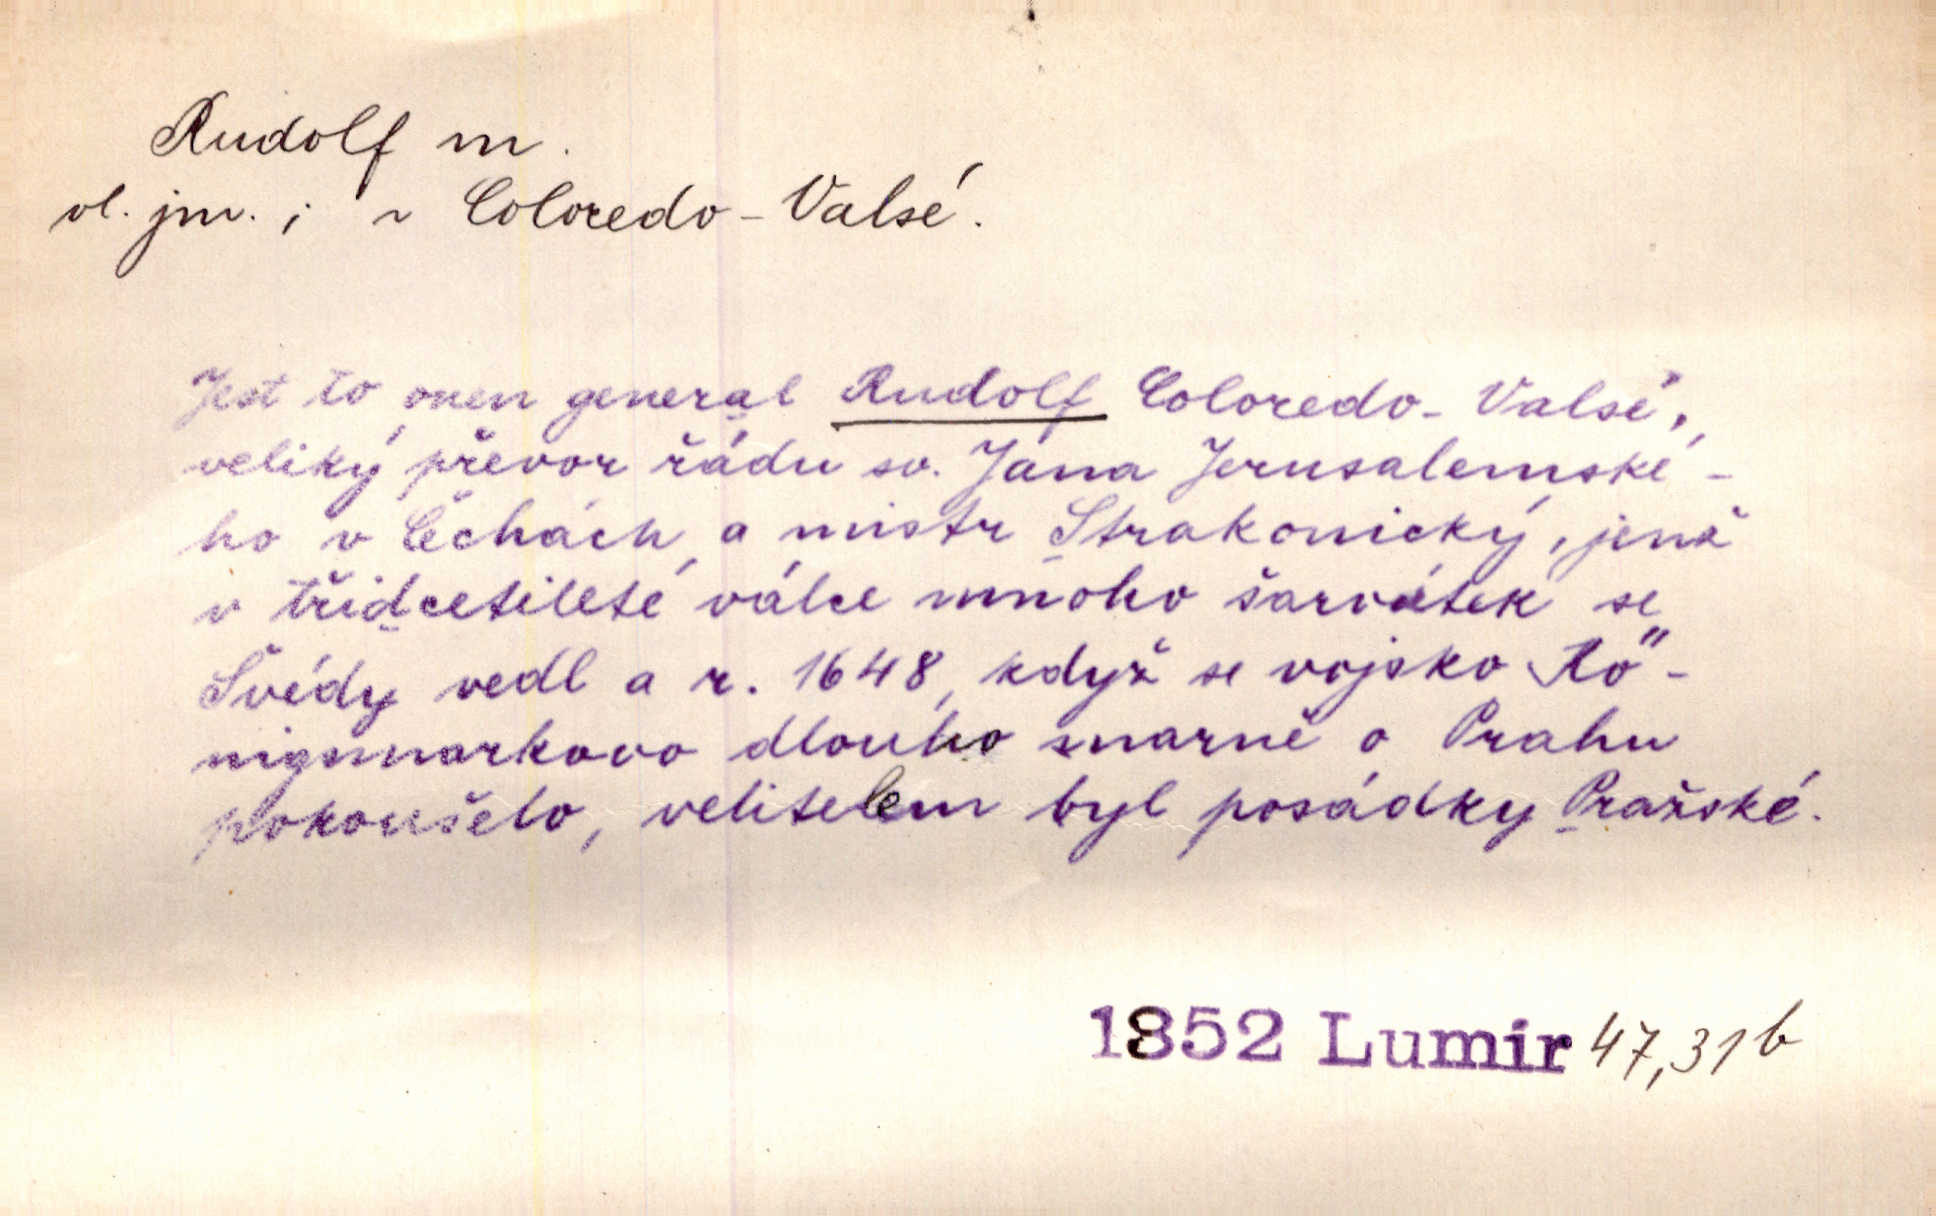 Rudolf m.
vl. jm. ; ~ Coloredo-Valsé.
Jest to onen general Rudolf Coloredo-Valsé,
veliký převor řádu sv. Jana Jerusalemské-
ho v Čechách a mistr Strakonický, jenž
v třidcetileté válce mnoho šarvátek se
Švédy vedl a r. 1648, když se vojsko Kö-
nigsmarkovo dlouho marně o Prahu
pokoušelo, velitelem byl posádky Pražské.
1852 Lumír 47,31b